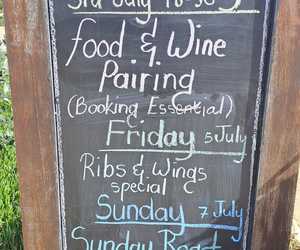 3rd July
Food & Wine
Pairing
(Booking Essential)
Friday 5 July
Ribs & Wings
special
Sunday 7 July
Sunday Roast